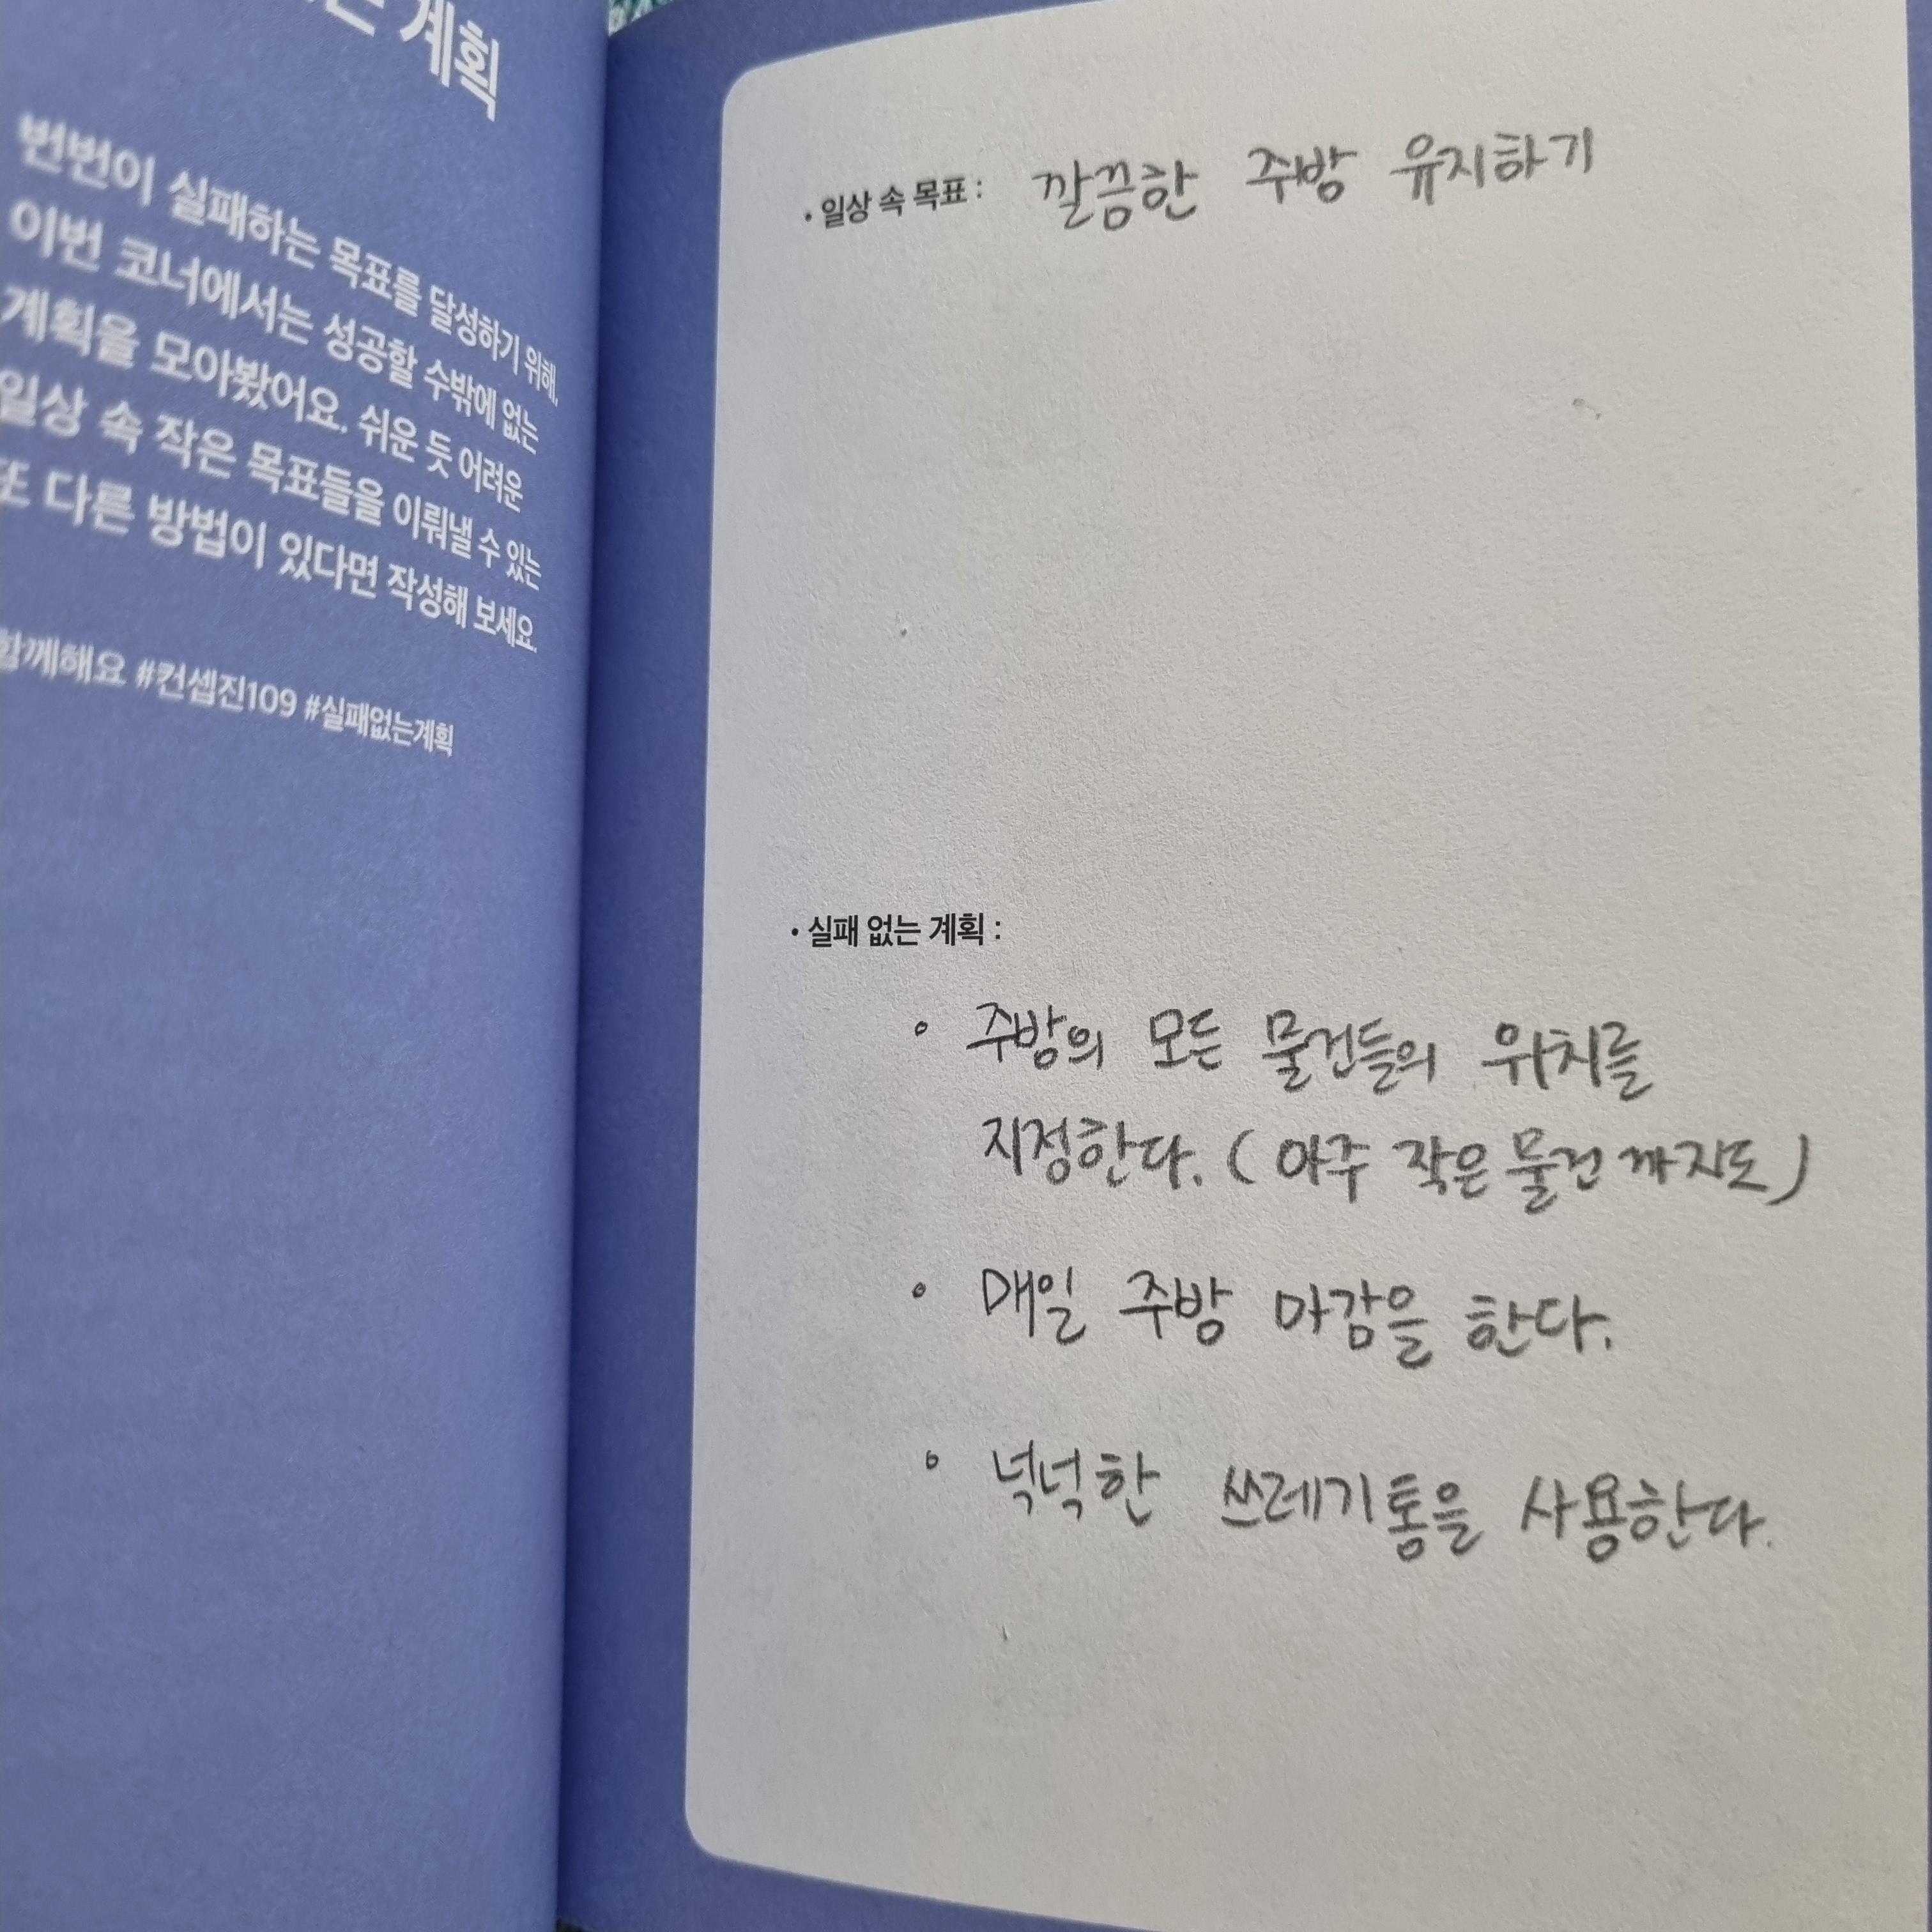 계획
번번이 실패하는 목표를 달성하기 위해,
이번 코너에서는 성공할 수밖에 없는
계획을 모아봤어요. 쉬운 듯 어려운
일상 속 작은 목표들을 이뤄낼 수 있는
또 다른 방법이 있다면 작성해 보세요.
함께해요 #컨셉진109 #실패없는계획
• 일상 속 목표 : 깔끔한 주방 유지하기
• 실패 없는 계획 :
• 주방의 모든 물건들의 위치를
지정한다. ( 아주 작은 물건 까지도 )
• 매일 주방 마감을 한다.
• 넉넉한 쓰레기통을 사용한다.